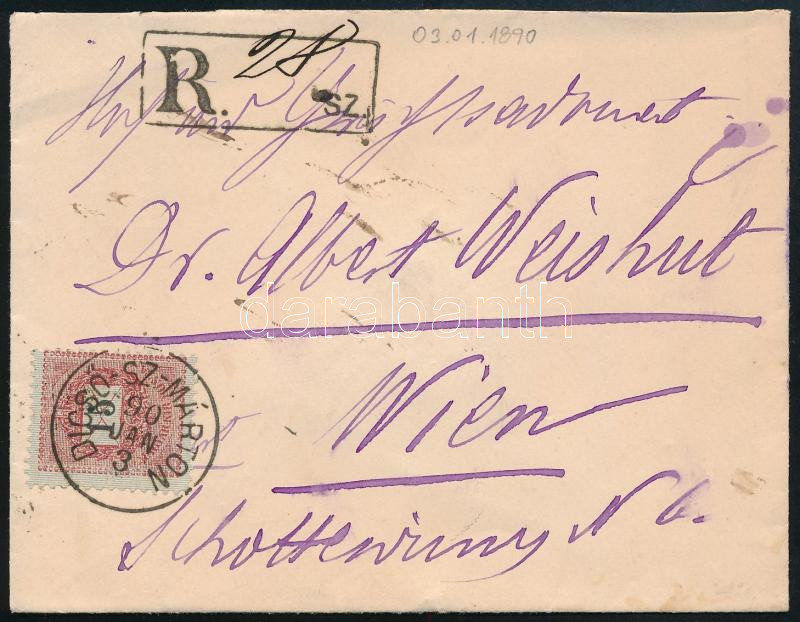 03.01.1890
R. 28
SZ.
Hof und Gerichtsadvocat
Dr. Albert Weishut
darabanth
Wien
Schottenring N 6.
DICSŐ-SZ-MÁRTON
15
90
JAN
3